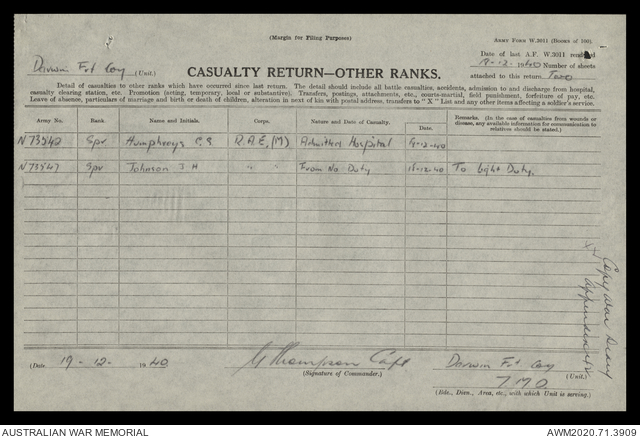 (Margin for Filing Purposes)
ARMY FORM W.3011 (BOOKS OF 100).
Date of last A.F. W.3011 rendered
Darwin Frt Coy (Unit.)
CASUALTY RETURN—OTHER RANKS.
18-12-1940 Number of sheets
attached to this return Two
Detail of casualties to other ranks which have occurred since last return. The detail should include all battle casualties, accidents, admission to and discharge from hospital,
casualty clearing station, etc. Promotion (acting, temporary, local or substantive). Transfers, postings, attachments, etc., courts-martial, field punishment, forfeiture of pay, etc.
Leave of absence, particulars of marriage and birth or death of children, alteration in next of kin with postal address, transfers to "X" List and any other items affecting a soldier's service.
Army No. Rank. Name and Initials. Corps. Nature and Date of Casualty. Date. Remarks. (In the case of casualties from wounds or disease, any available information for communication to relatives should be stated.)
Spr Humphreys C. G. R.A.E. (M) Admitted Hospital 19-12-40
N73947 Spr Johnson J H " " From No Duty 18-12-40 To Light Duty.
Copy War Diary
Appendix
(Date 19-12-1940
Thompson Capt
(Signature of Commander.)
Darwin Frt Coy
(Unit.)
7 MD
(Bde., Divn., Area, etc., with which Unit is serving.)
AUSTRALIAN WAR MEMORIAL
AWM2020.71.3909